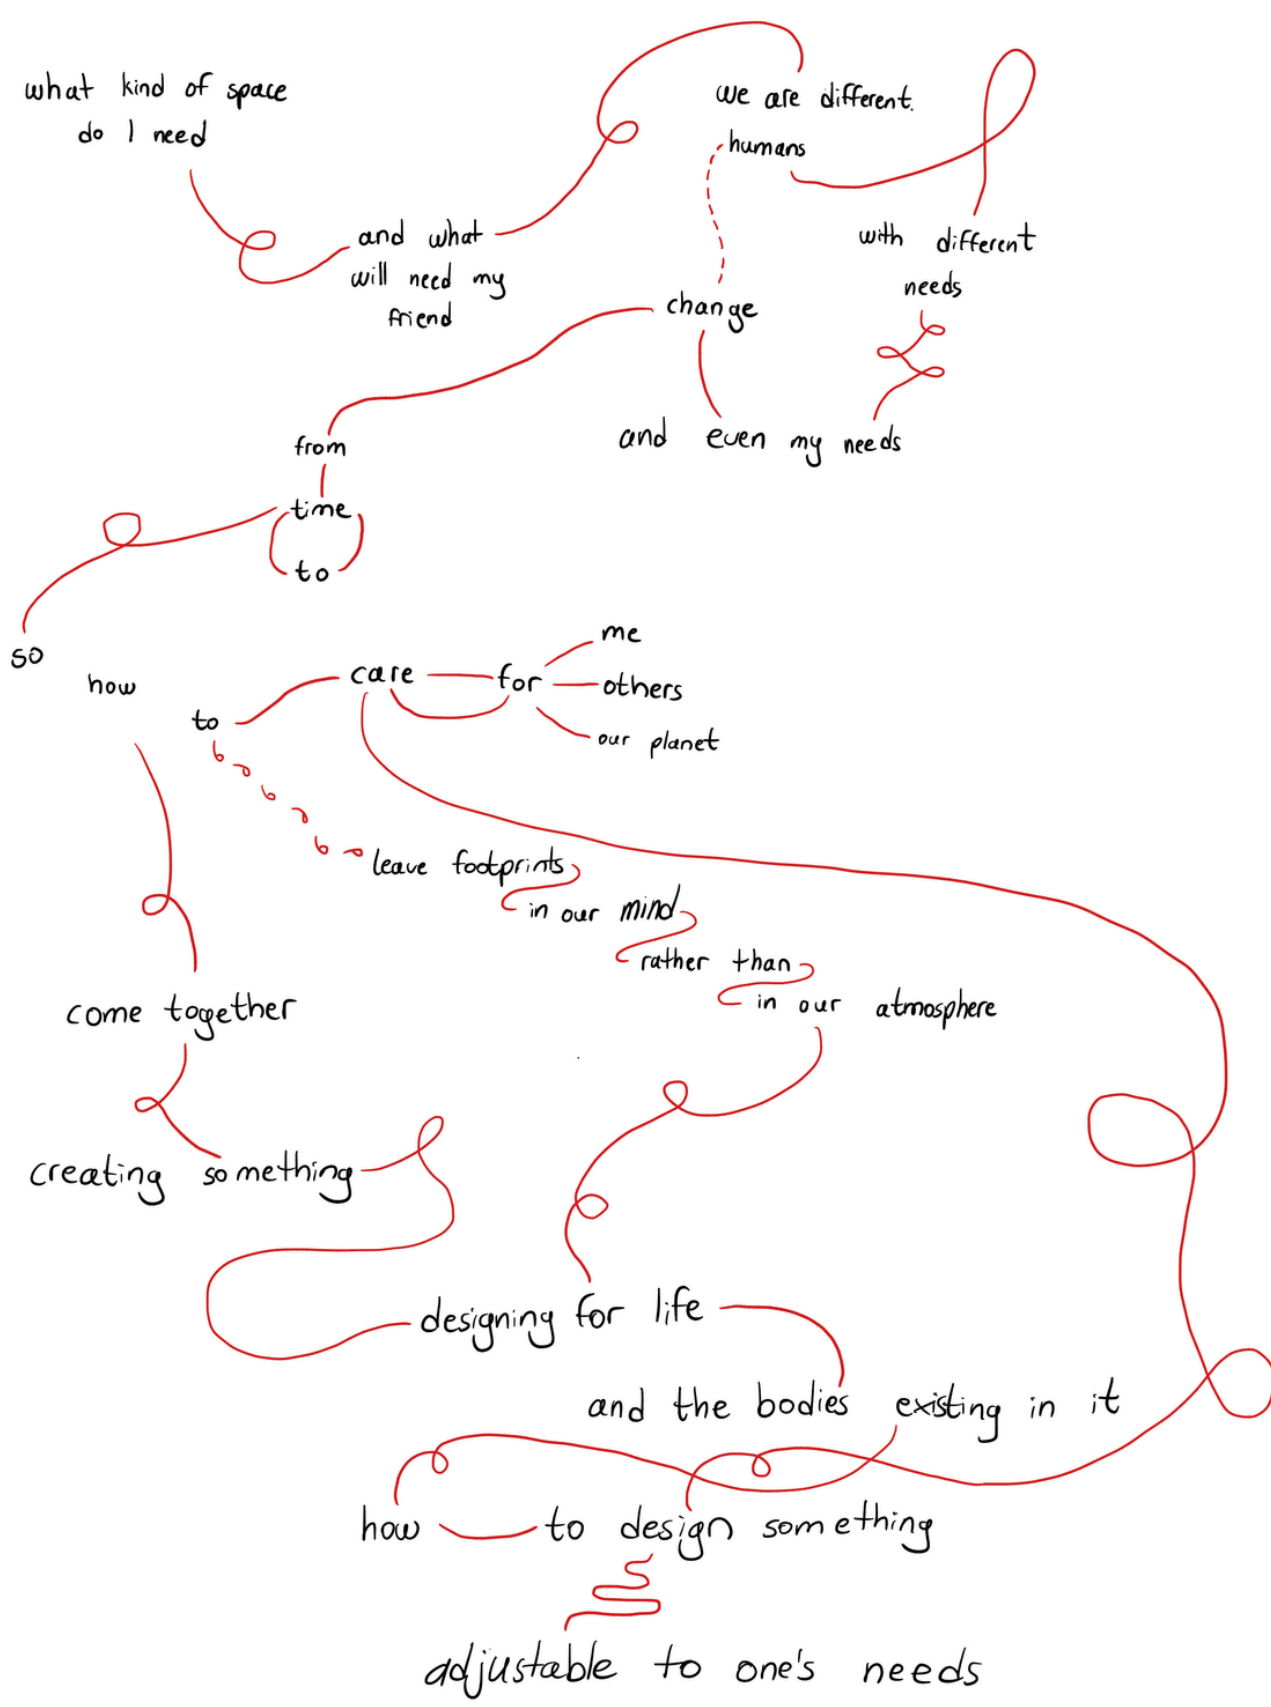 what kind of space
do I need
and what
will need my
friend
we are different.
humans
with different
needs
and even my needs
change
from
time
to
so
how
to
care for
me
others
our planet
leave footprints
in our mind
rather than
in our atmosphere
come together
creating something
designing for life
and the bodies existing in it
how to design something
adjustable to one's needs